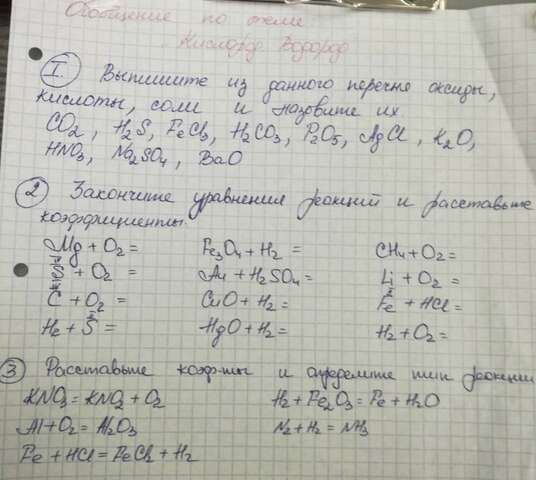 Обобщение по теме:
Кислород. Водород
I. Выпишите из данного перечня оксиды,
кислоты, соли и назовите их.
CO2, H2S, FeCl3, H2CO3, P2O5, AgCl, K2O,
HNO3, Na2SO4, BaO
2 Закончите уравнения реакций и расставьте
коэффициенты.
Mg + O2 = Fe3O4 + H2 = CH4 + O2 =
S + O2 = + H2SO4 = Li + O2 =
C + O2 = CuO + H2 = Fe + HCl =
H2 + S = HgO + H2 = H2 + O2 =
3 Расставьте коэф-ты и определите тип реакции
KNO3 = KNO2 + O2 H2 + Fe2O3 = Fe + H2O
Al + O2 = Al2O3 N2 + H2 = NH3
Fe + HCl = FeCl2 + H2